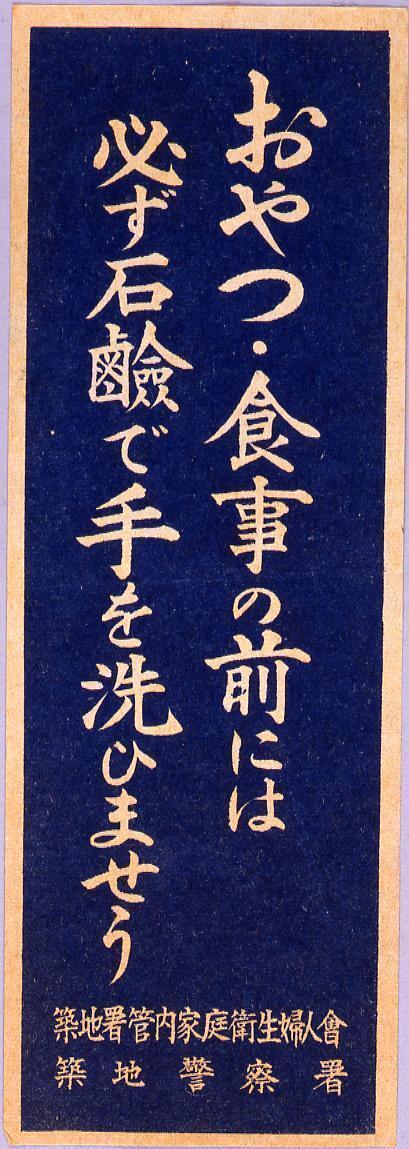 おやつ・食事の前には
必ず石鹼で手を洗ひませう
築地署管内家庭衛生婦人會
築地警察署